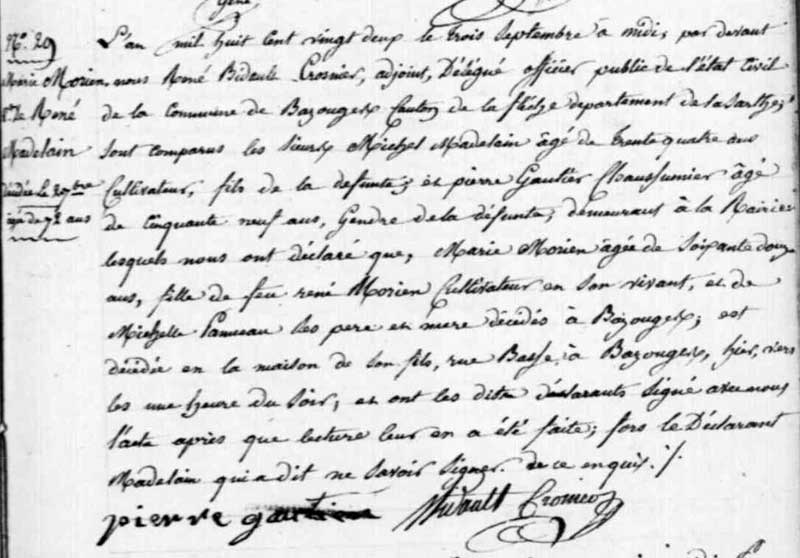 No. 29
Marie Morien
de René
Madelain
décédée le 2 7bre
agée de 72 ans
L'an mil huit cent vingt deux le trois Septembre à midi, par devant
nous René Bideult Crosnier, adjoint, Délégué officier public de l'état Civil
de la Commune de Bazouges, Canton de la flèche département de la Sarthe;
Sont comparus les Sieurs Michel Madelain âgé de trente quatre ans
Cultivateur, fils de la défunte; et pierre Gautier Chaussumier âgé
de Cinquante neuf ans, Gendre de la défunte, demeurant à la Rairie
lesquels nous ont déclaré que, Marie Morien âgée de Soixante douze
ans, fille de feu rené Morien Cultivateur en Son vivant, et de
Michelle Pauveau Ses pere et mere décédés à Bazouges; est
décédée en la maison de Son fils, rue Basse, à Bazouges, hier, vers
les une heure du Soir; et ont les dits déclarants Signé avec nous
l'acte après que lecture leur en a été faite; fors le Déclarant
Madelain qui a dit ne Savoir Signer. de ce enquis ./.
pierre gautier Bidault Crosnier